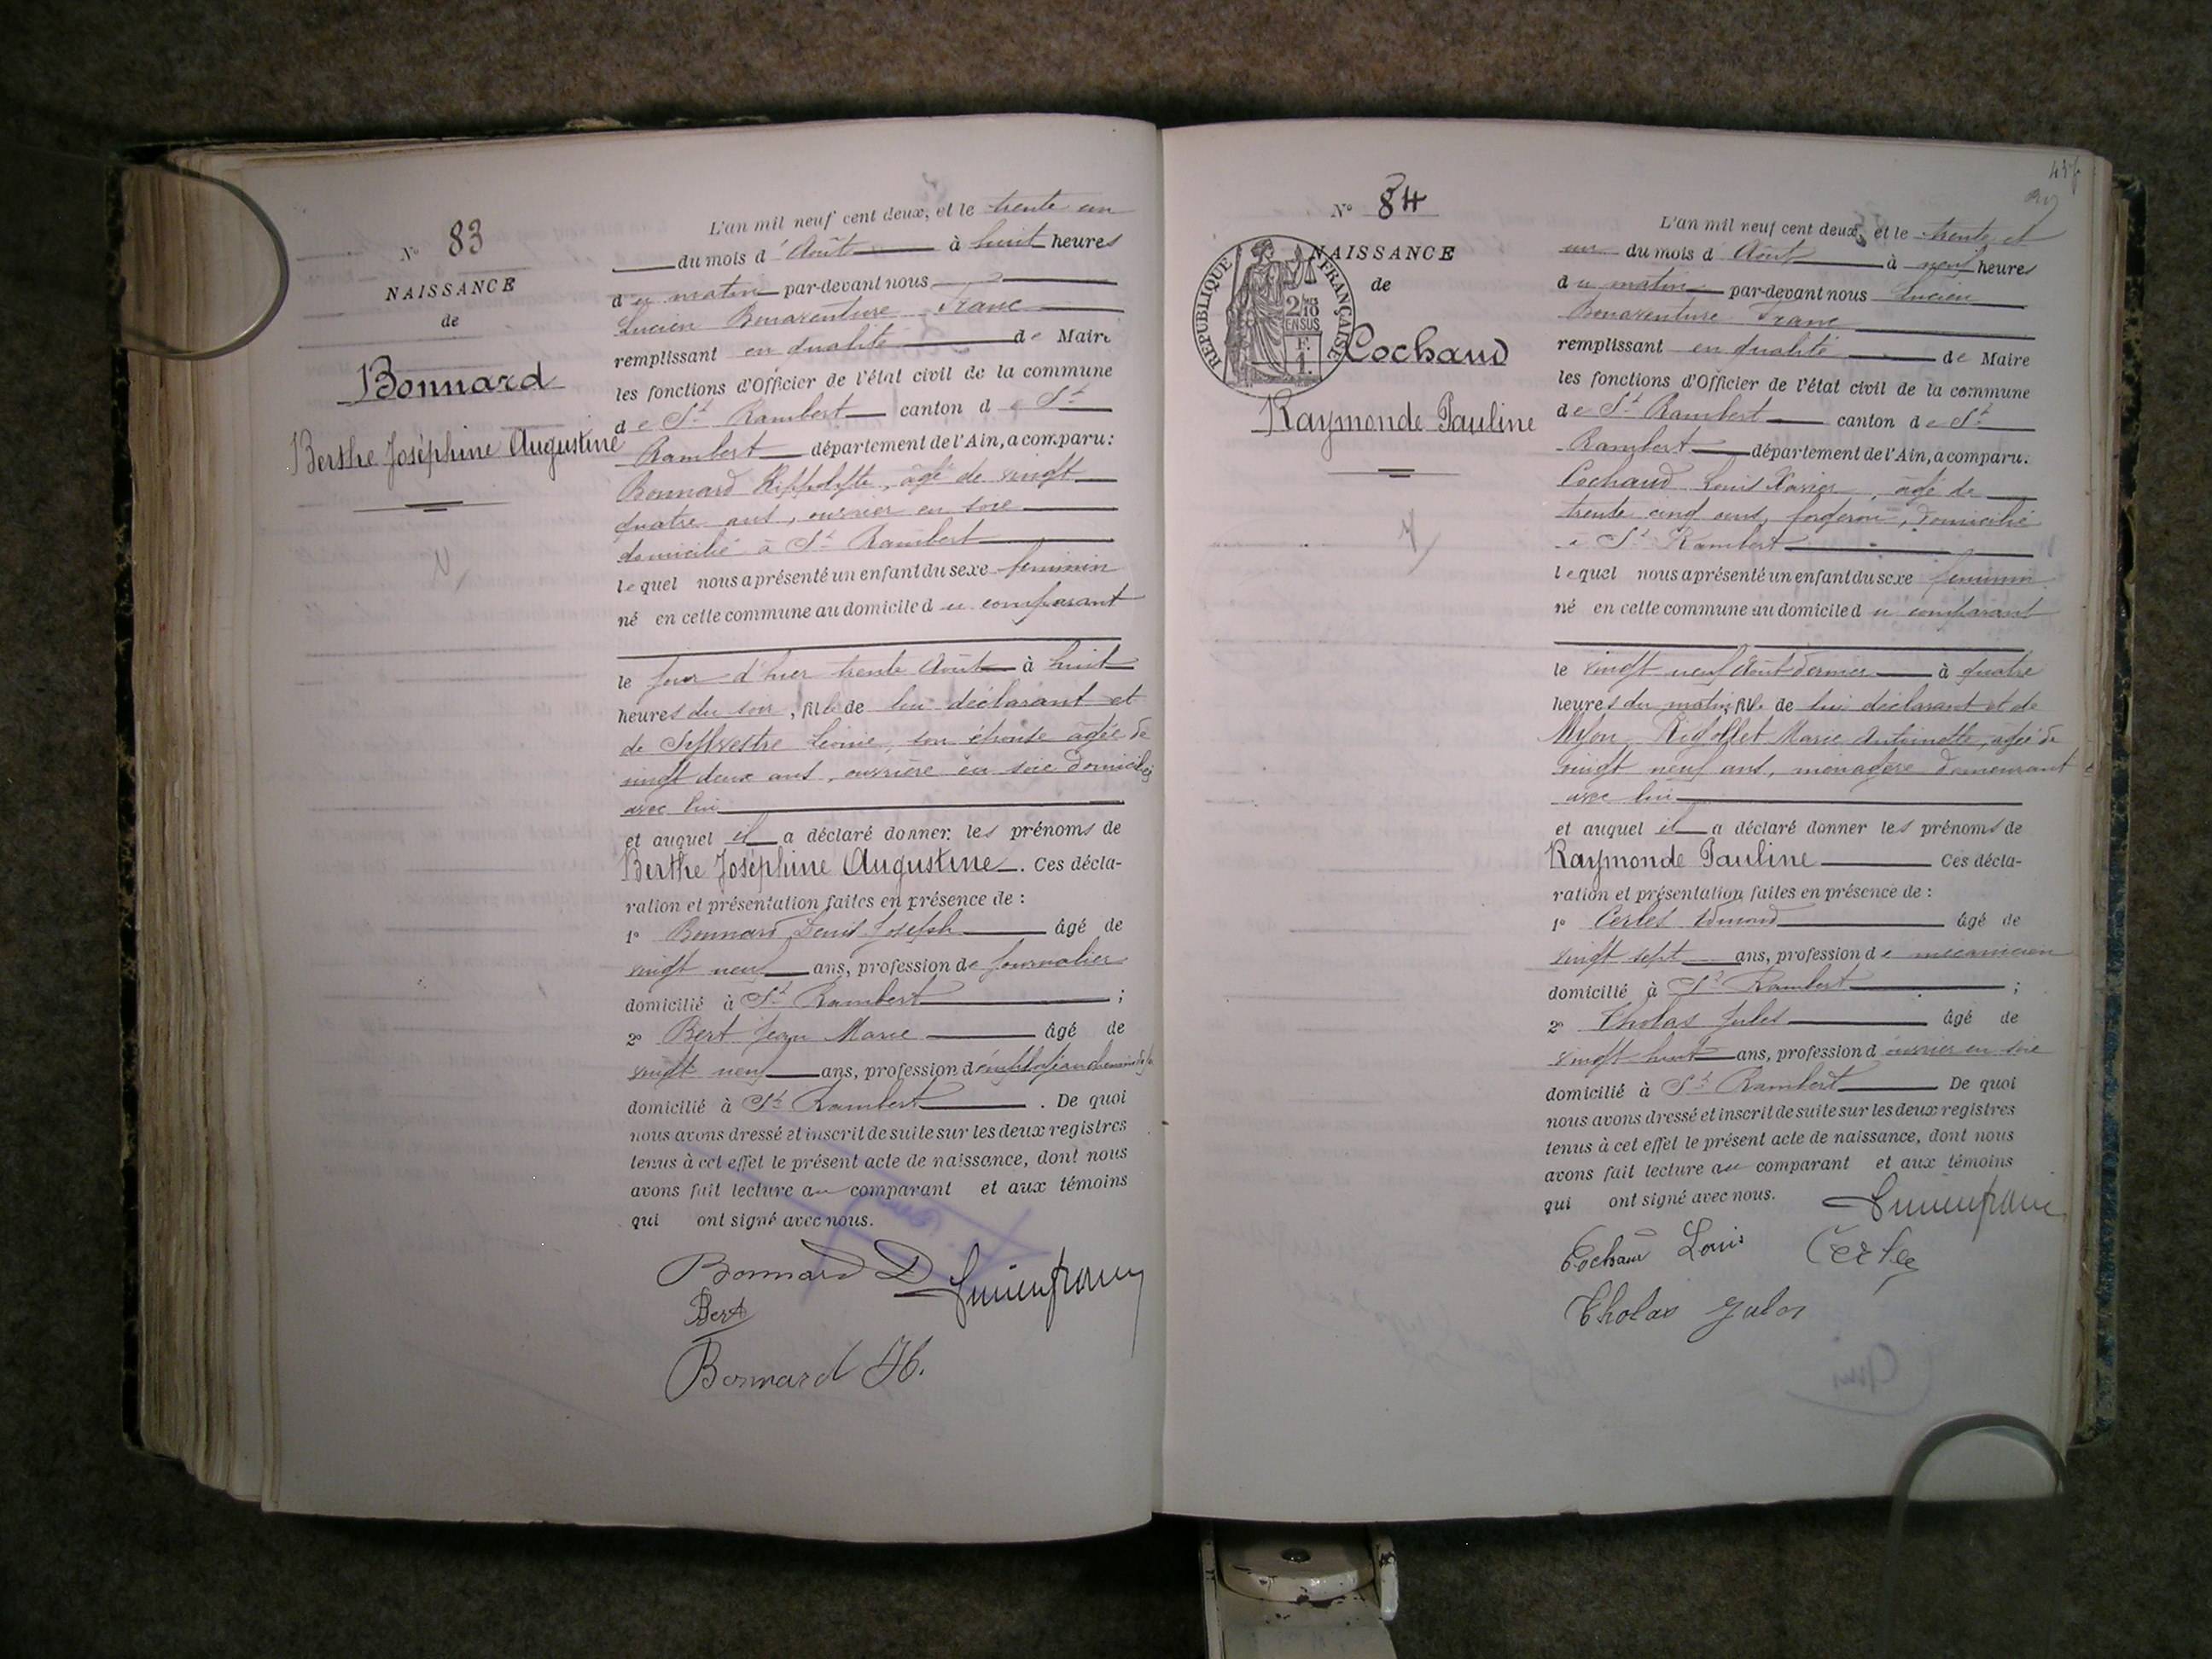 N° 83
NAISSANCE
de
Bonnard
Berthe Joséphine Augustine
L'an mil neuf cent deux, et le trente un
du mois d'Août à huit heures
du matin par-devant nous
Lucien Bonaventure Franc
remplissant en qualité de Maire
les fonctions d'Officier de l'état civil de la commune
de St Rambert canton de St
Rambert département de l'Ain, a comparu:
Bonnard Hippolyte, âgé de vingt
quatre ans, ouvrier en soie
domicilié à St Rambert
lequel nous a présenté un enfant du sexe féminin
né en cette commune au domicile du comparant
le jour d'hier trente Août à huit
heures du soir, fille de lui déclarant et
de Sylvestre Léonie, son épouse âgée de
vingt deux ans, ouvrière en soie domiciliée
avec lui
et auquel il a déclaré donner les prénoms de
Berthe Joséphine Augustine. Ces décla-
ration et présentation faites en présence de :
1° Bonnard Denis Joseph âgé de
vingt neuf ans, profession de journalier
domicilié à St Rambert ;
2° Bert Jean Marie âgé de
vingt neuf ans, profession d'employé au chemin de fer
domicilié à St Rambert . De quoi
nous avons dressé et inscrit de suite sur les deux registres
tenus à cet effet le présent acte de naissance, dont nous
avons fait lecture au comparant et aux témoins
qui ont signé avec nous.
Bonnard D Lucien Franc
Bert
Bonnard H.
N° 84
NAISSANCE
de
RÉPUBLIQUE FRANÇAISE
2/10
EN SUS
F.
1.
Cochand
Raymonde Pauline
L'an mil neuf cent deux, et le trente et
un du mois d'Août à neuf heures
du matin par-devant nous Lucien
Bonaventure Franc
remplissant en qualité de Maire
les fonctions d'Officier de l'état civil de la commune
de St Rambert canton de St
Rambert département de l'Ain, a comparu:
Cochand Louis Xavier, âgé de
trente cinq ans, forgeron, domicilié
à St Rambert
lequel nous a présenté un enfant du sexe féminin
né en cette commune au domicile du comparant
le vingt neuf Août dernier à quatre
heures du matin, fille de lui déclarant et de
Rigollet Marie Antoinette, âgée de
vingt neuf ans, ménagère demeurant
avec lui
et auquel il a déclaré donner les prénoms de
Raymonde Pauline Ces décla-
ration et présentation faites en présence de :
1° Edmond âgé de
vingt sept ans, profession de mécanicien
domicilié à St Rambert ;
2° Tholas Jules âgé de
vingt huit ans, profession d'ouvrier en soie
domicilié à St Rambert De quoi
nous avons dressé et inscrit de suite sur les deux registres
tenus à cet effet le présent acte de naissance, dont nous
avons fait lecture au comparant et aux témoins
qui ont signé avec nous. Lucien Franc
Cochand Louis
Tholas Jules